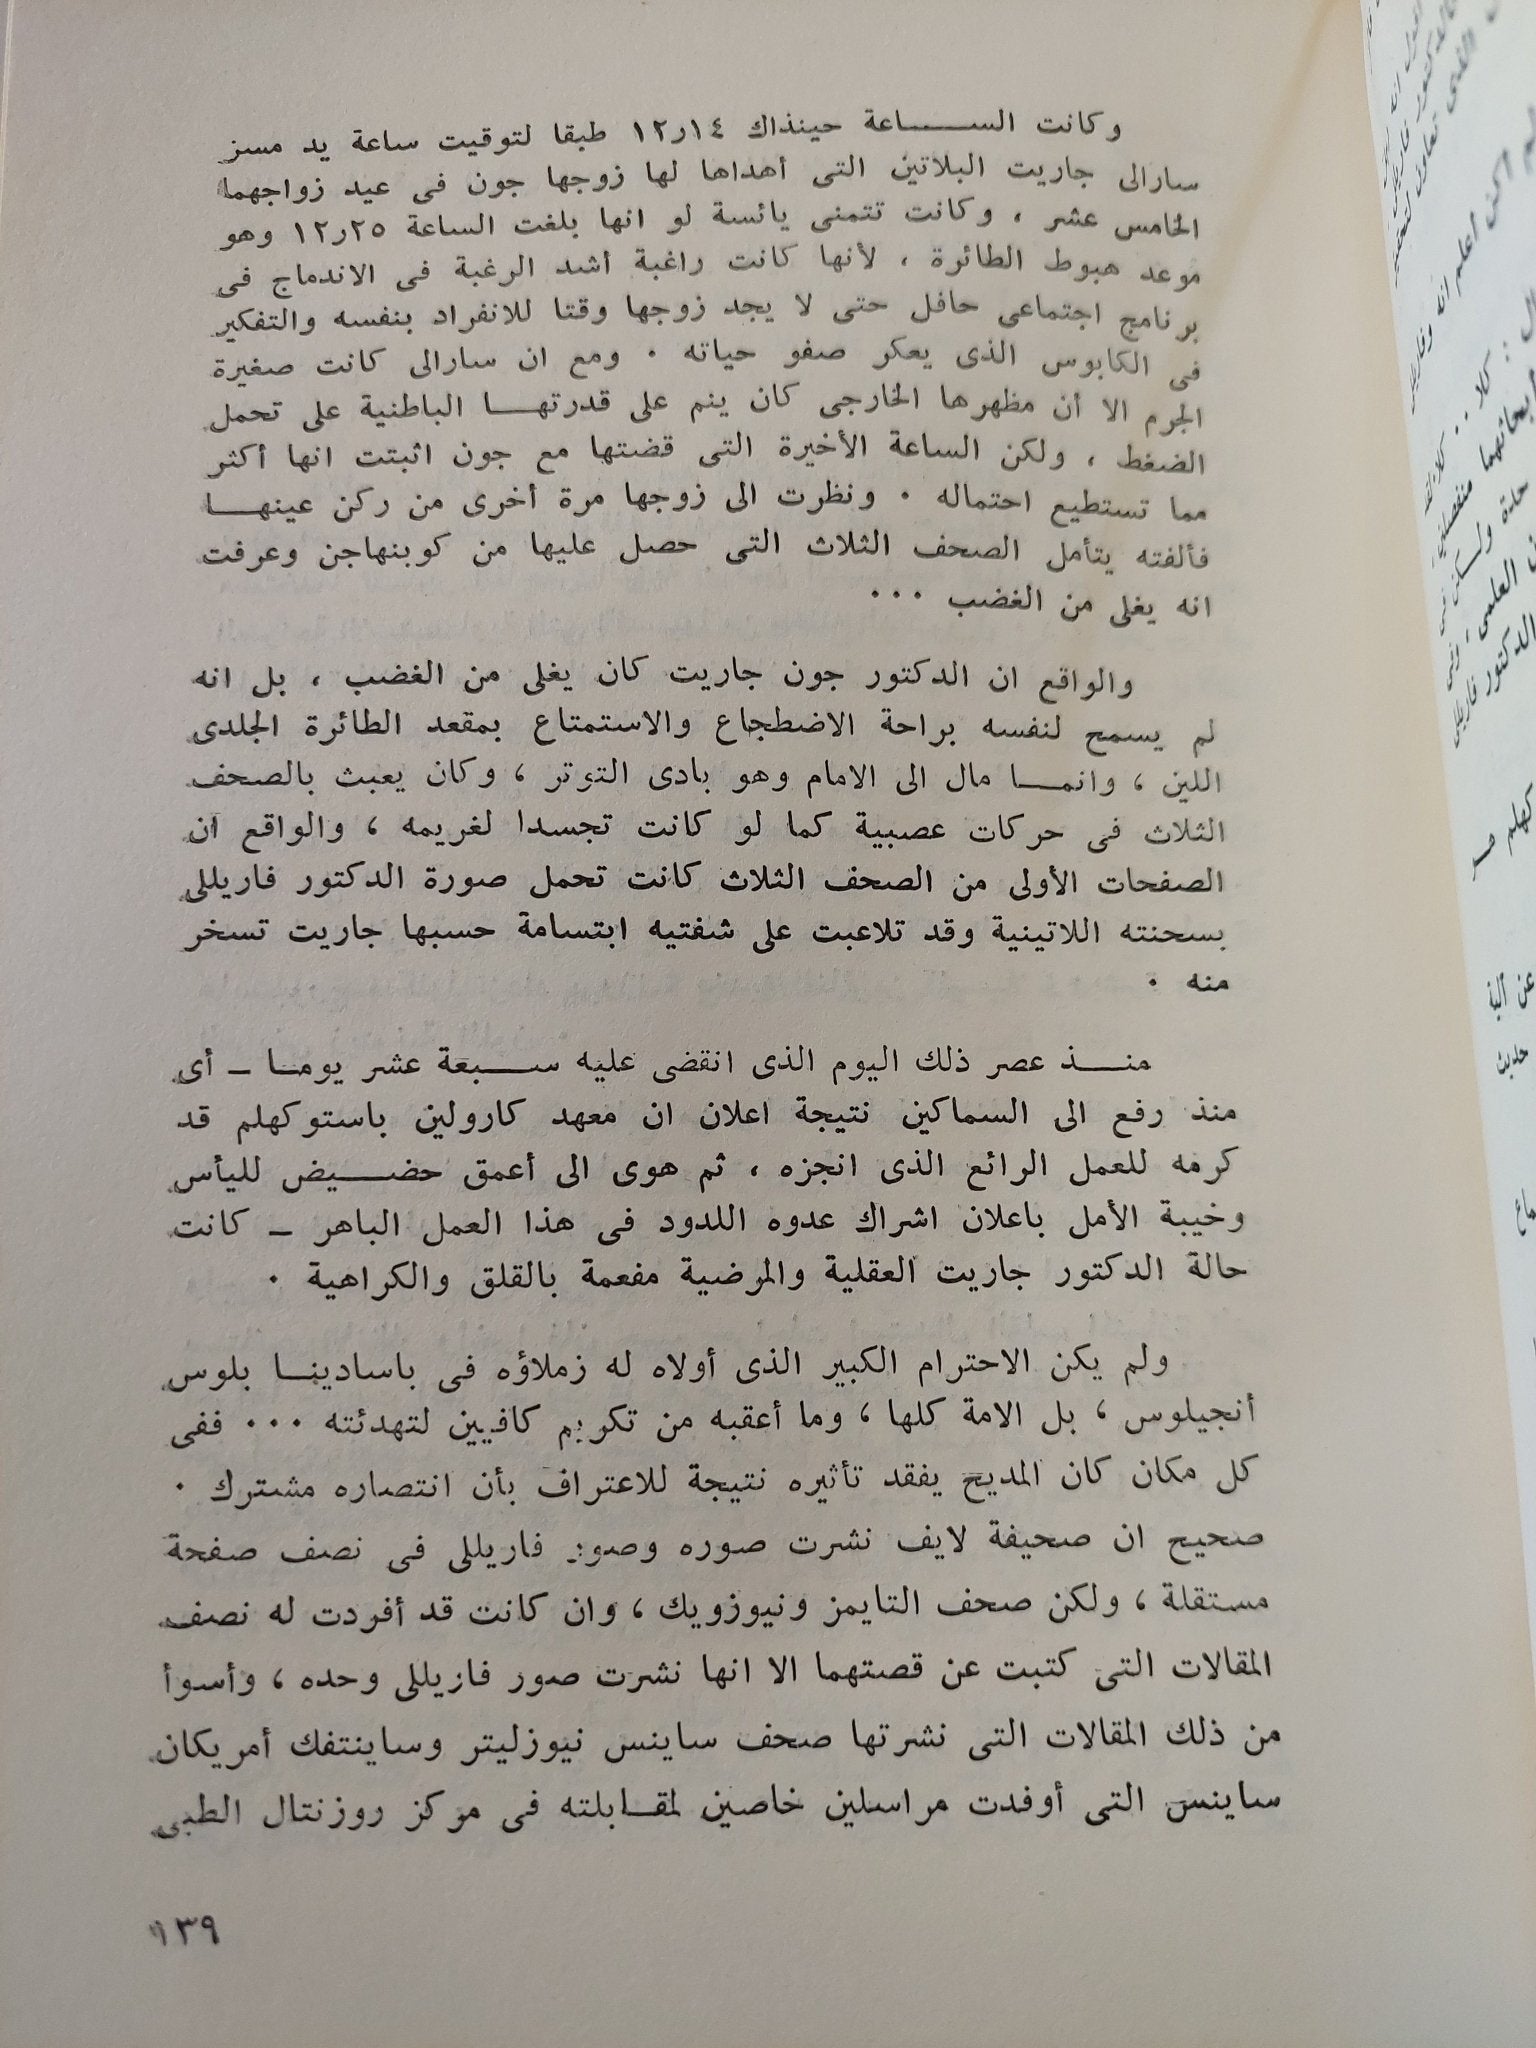 وكانت الســــاعة حينذاك ١٢ر١٤ طبقا لتوقيت ساعة يد مسز
سارالى جاريت البلاتين التى أهداها لها زوجها جون فى عيد زواجهما
الخامس عشر ، وكانت تتمنى يائسة لو انها بلغت الساعة ١٢ر٢٥ وهو
موعد هبوط الطائرة ، لأنها كانت راغبة أشد الرغبة فى الاندماج فى
برنامج اجتماعى حافل حتى لا يجد زوجها وقتا للانفراد بنفسه والتفكير
فى الكابوس الذى يعكر صفو حياته ٠ ومع ان سارالى كانت صغيرة
الجرم الا أن مظهرها الخارجى كان ينم على قدرتهــا الباطنية على تحمل
الضغط ، ولكن الساعة الأخيرة التى قضتها مع جون اثبتت انها أكثر
مما تستطيع احتماله ٠ ونظرت الى زوجها مرة أخرى من ركن عينهــا
فألفته يتأمل الصحف الثلاث التى حصل عليها من كوبنهاجن وعرفت
انه يغلى من الغضب ٠٠٠
والواقع ان الدكتور جون جاريت كان يغلى من الغضب ، بل انه
لم يسمح لنفسه براحة الاضطجاع والاستمتاع بمقعد الطائرة الجلدى
اللين ، وانمــا مال الى الامام وهو بادى التوتر ، وكان يعبث بالصحف
الثلاث فى حركات عصبية كما لو كانت تجسدا لغريمه ، والواقع ان
الصفحات الأولى من الصحف الثلاث كانت تحمل صورة الدكتور فاريللى
بسحنته اللاتينية وقد تلاعبت على شفتيه ابتسامة حسبها جاريت تسخر
منه ٠
منــذ عصر ذلك اليوم الذى انقضى عليه ســبعة عشر يومــا ــ أى
منذ رفع الى السماكين نتيجة اعلان ان معهد كارولين باستوكهلم قد
كرمه للعمل الرائع الذى انجزه ، ثم هوى الى أعمق حضــيض لليأس
وخيبة الأمل باعلان اشراك عدوه اللدود فى هذا العمل الباهر ــ كانت
حالة الدكتور جاريت العقلية والمرضية مفعمة بالقلق والكراهية ٠
ولم يكن الاحترام الكبير الذى أولاه له زملاؤه فى باسادينــا بلوس
أنجيلوس ، بل الامة كلها ، وما أعقبه من تكريم كافيين لتهدئته ٠٠٠ ففى
كل مكان كان المديح يفقد تأثيره نتيجة للاعتراف بأن انتصاره مشترك ٠
صحيح ان صحيفة لايف نشرت صوره وصور فاريللى فى نصف صفحة
مستقلة ، ولكن صحف التايمز ونيوزويك ، وان كانت قد أفردت له نصف
المقالات التى كتبت عن قصتهما الا انها نشرت صور فاريللى وحده ، وأسوأ
من ذلك المقالات التى نشرتها صحف ساينس نيوزليتر وساينتفك أمريكان
ساينس التى أوفدت مراسلين خاصين لمقــابلته فى مركز روزنتال الطبى
١٣٩